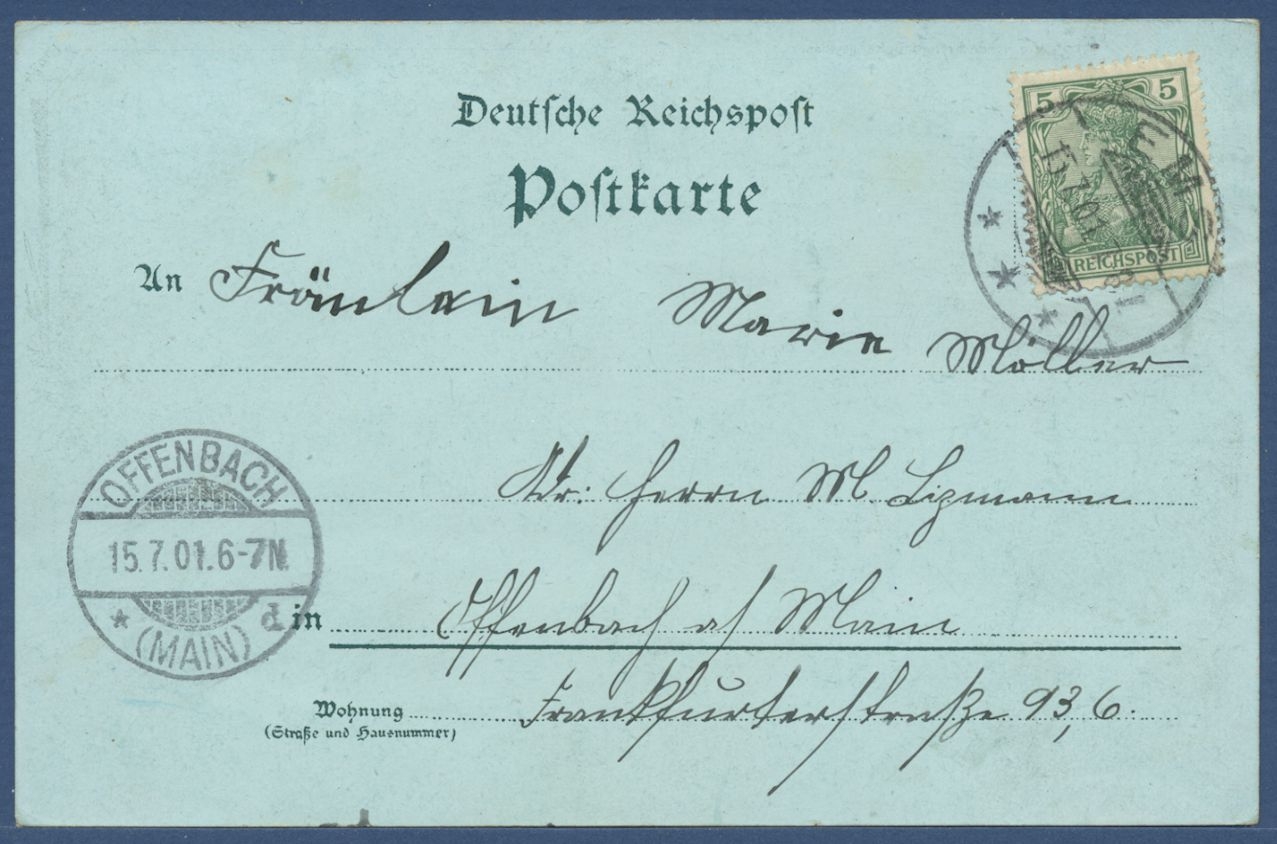 Deutsche Reichspost
Postkarte
5 5
REICHSPOST
EMS
15.7.01
An Fräulein Marie Möller
Adr: Herrn M. Lizmann
OFFENBACH
15.7.01.6-7N
(MAIN) d
in Offenbach a/ Main
Wohnung Frankfurterstraße 93,6.
(Straße und Hausnummer)